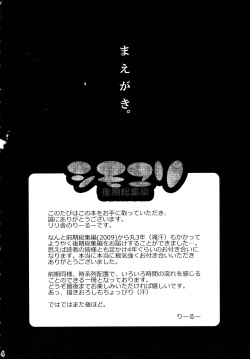 まえがき。
シモユリ
後期総集編
このたびはこの本をお手に取っていただき、
誠にありがとうございます。
リリ舎のりーるーです。
なんと前期総集編(2009)から丸3年（滝汗）もかかって
ようやく後期総集編をお届けすることができました…。
思えば読者の皆様とも足かけ4年ぐらいのお付き合いに
なります。本当に本当に根気強くお付き合いいただき
ありがとうございました。
前期同様、時系列配置で、いろいろ時間の流れを感じる
ことのできる一冊となっております。
どうぞ最後までお楽しみいただければ嬉しいです。
あっ、描きおろしもちょっぴり（汗）
ではではまた後ほど。
りーるー